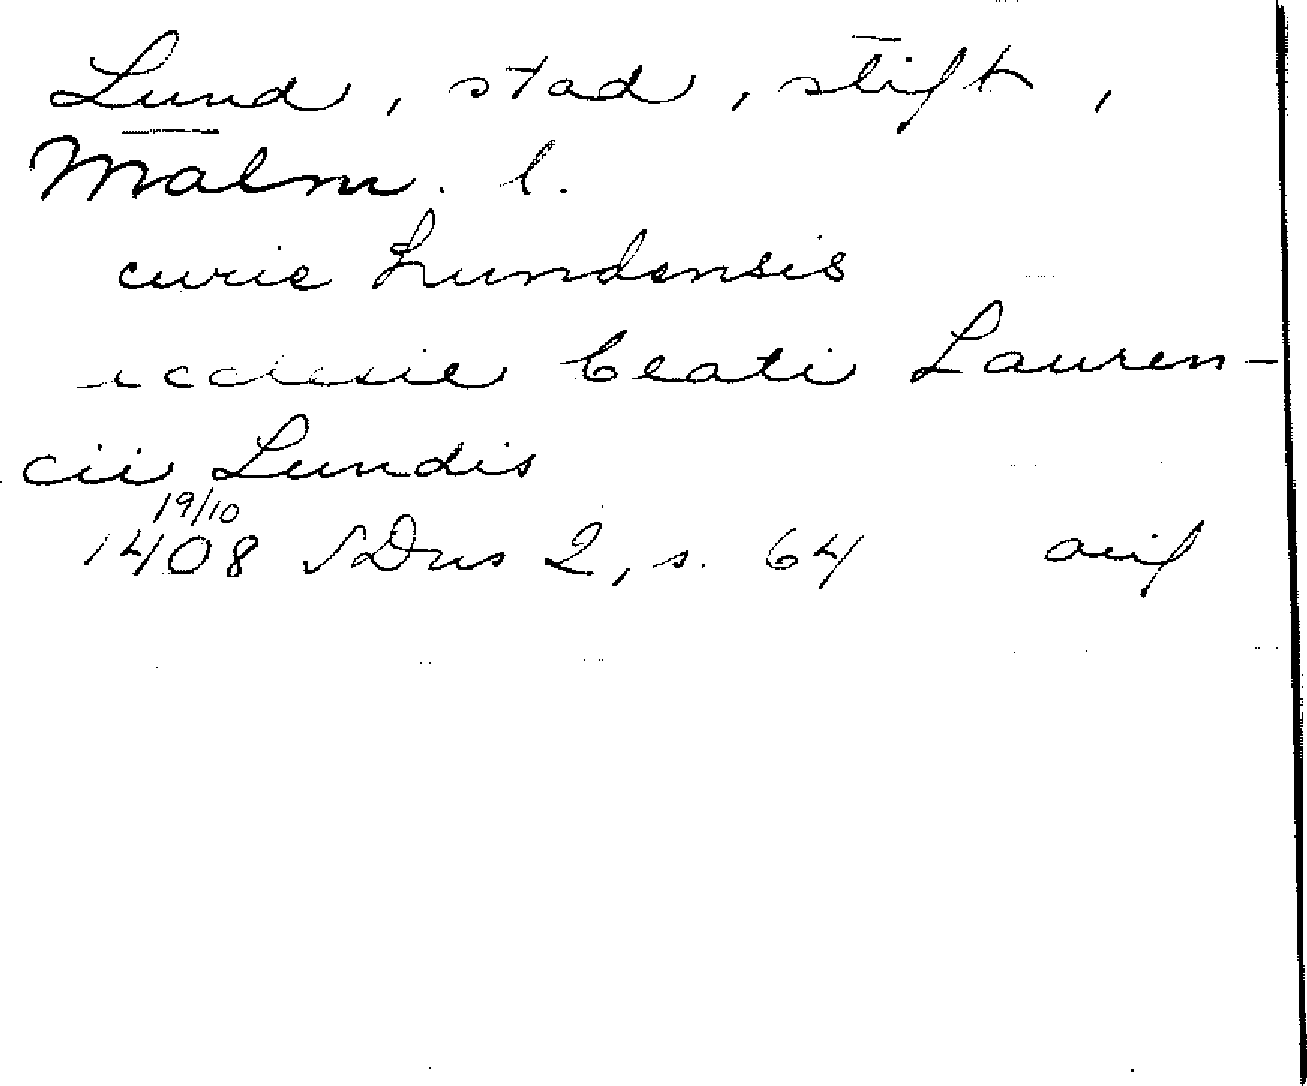 Lund, stad, stift,
Malm. l.
curie Lundensis
ecclesie beati Lauren-
cii Lundis
19/10
1408 SDns 2, s. 64 avil